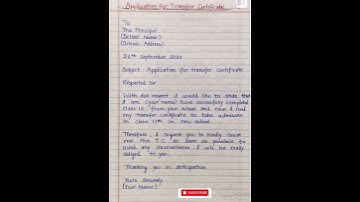 Application for Transfer Certificate
To
The Principal
(School Name)
(School Address)
26th September
Subject: Application for transfer certificate
Respected Sir
With due respect I would like to state that
I am (your name) have successfully completed
class 10 from your school and now I need
my transfer certificate to take admission
in class 11th in new school.
Therefore, I request you to kindly issue
me the T.C as soon as possible to
avoid any inconvenience. I will be really
obliged to you.
Thanking you in anticipation
Yours Sincerely
(Your Name)
SUBSCRIBE